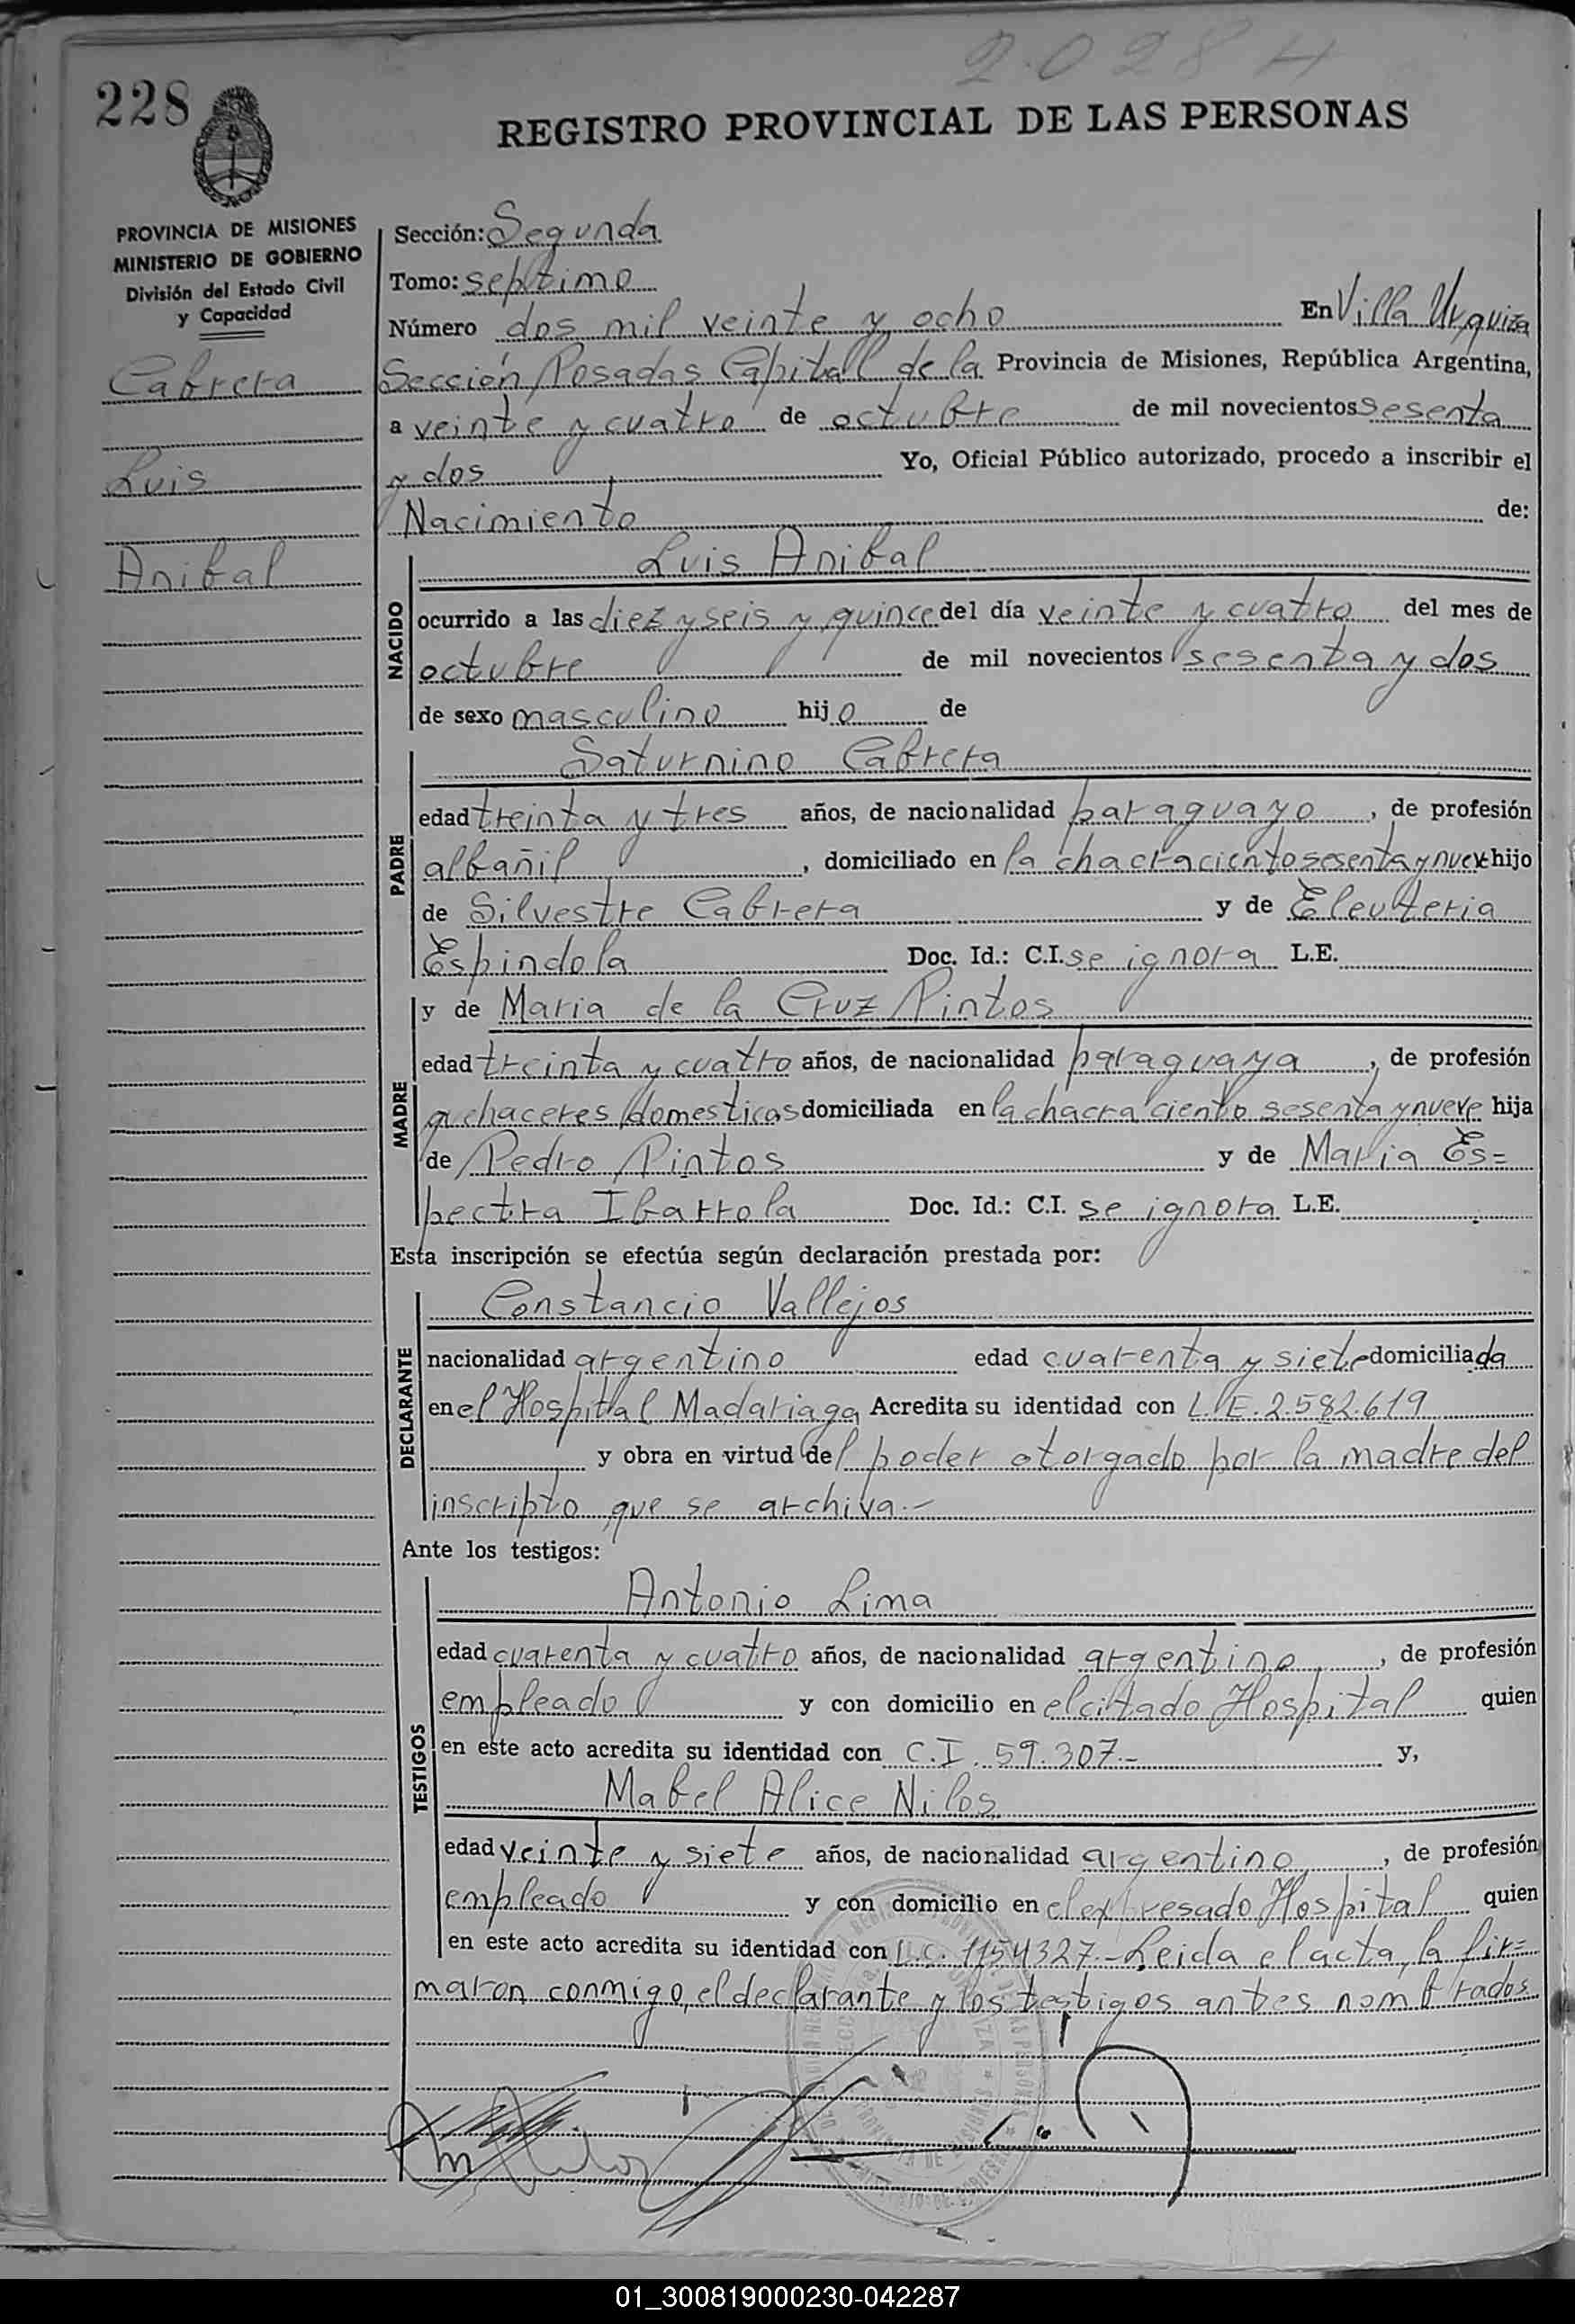 2028 H
228
REGISTRO PROVINCIAL DE LAS PERSONAS
PROVINCIA DE MISIONES
MINISTERIO DE GOBIERNO
División del Estado Civil
y Capacidad
Cabrera
Luis
Anibal
Sección: Segunda
Tomo: septimo
Número dos mil veinte y ocho En Villa Urquiza
Sección Posadas Capital de la Provincia de Misiones, República Argentina,
a veinte y cuatro de octubre de mil novecientos sesenta
y dos Yo, Oficial Público autorizado, procedo a inscribir el
Nacimiento de:
NACIDO
Luis Anibal
ocurrido a las diez y seis y quince del día veinte y cuatro del mes de
octubre de mil novecientos sesenta y dos
de sexo masculino hijo de
PADRE
Saturnino Cabrera
edad treinta y tres años, de nacionalidad paraguayo, de profesión
albañil, domiciliado en la chacra ciento sesenta y nueve hijo
de Silvestre Cabrera y de Eleuteria
Espindola Doc. Id.: C.I. se ignora L.E.
MADRE
y de Maria de la Cruz Pintos
edad treinta y cuatro años, de nacionalidad paraguaya, de profesión
quehaceres domesticos domiciliada en la chacra ciento sesenta y nueve hija
de Pedro Pintos y de Maria Es=
pectra Ibarrola Doc. Id.: C.I. se ignora L.E.
Esta inscripción se efectúa según declaración prestada por:
DECLARANTE
Constancio Vallejos
nacionalidad argentino edad cuarenta y siete domiciliada
en el Hospital Madariaga Acredita su identidad con L.E. 2.582.619
y obra en virtud del poder otorgado por la madre del
inscripto que se archiva.-
Ante los testigos:
TESTIGOS
Antonio Lima
edad cuarenta y cuatro años, de nacionalidad argentino, de profesión
empleado y con domicilio en el citado Hospital quien
en este acto acredita su identidad con C.I. 59.307.- y,
Mabel Alice Nilos
edad veinte y siete años, de nacionalidad argentino, de profesión
empleado y con domicilio en el expresado Hospital quien
en este acto acredita su identidad con L.C. 1154327.- Leida el acta, la fir=
maron conmigo, el declarante y los testigos antes nombrados
01_300819000230-042287